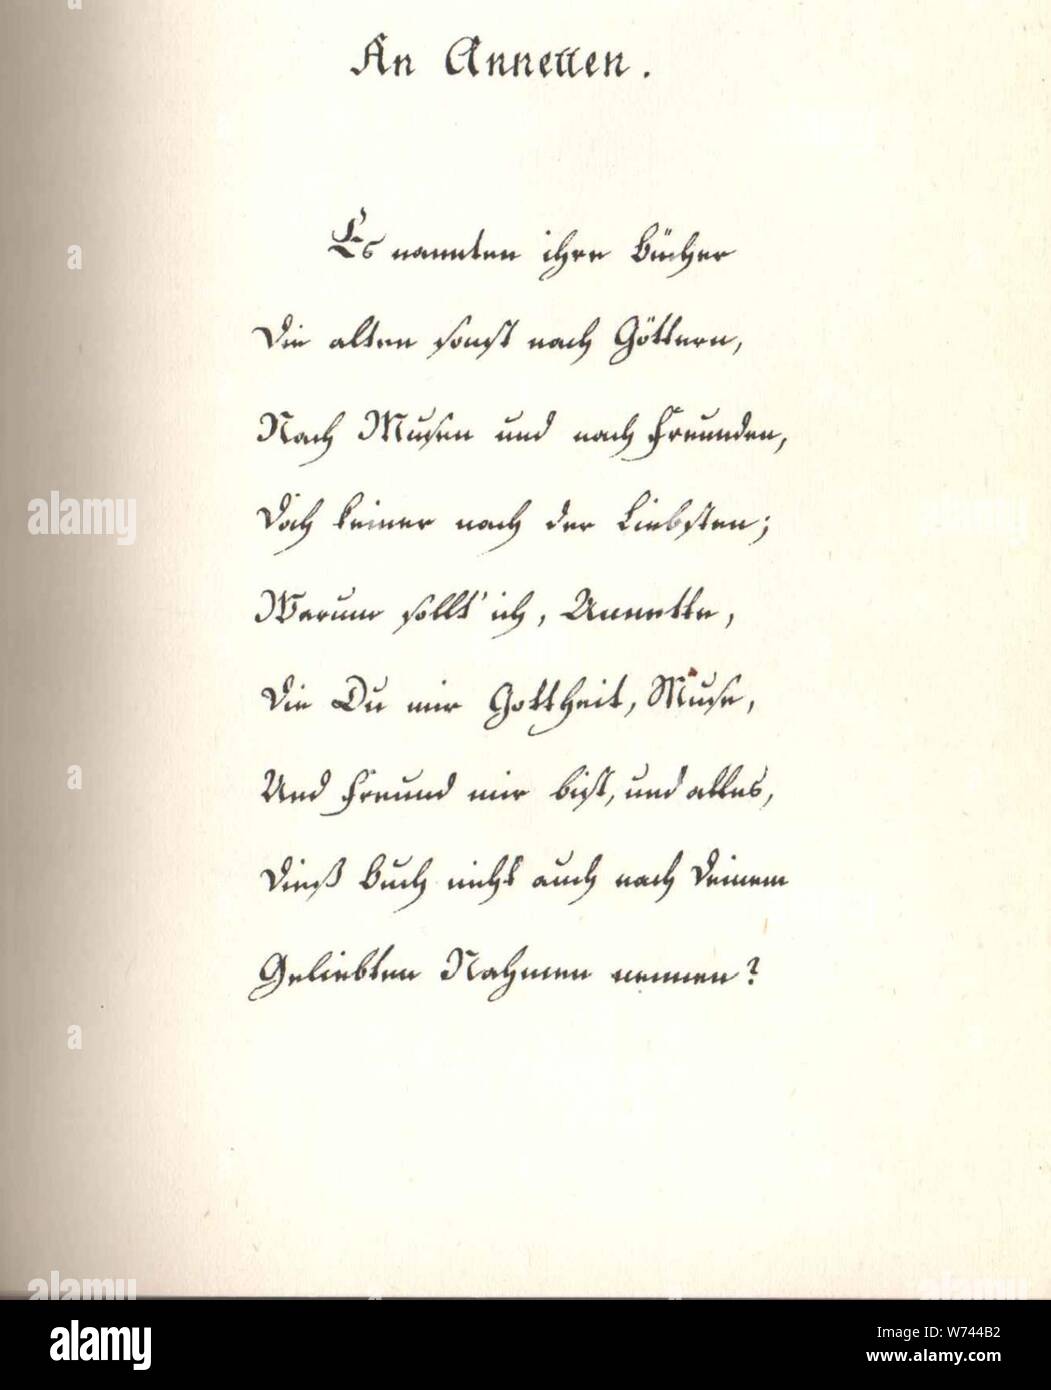 An Annetten.
Es nannten ihre Bücher
Die alten sonst nach Göttern,
Nach Musen und nach Freunden,
Doch keiner nach der Liebsten;
Warum sollt' ich, Annette,
Die Du mir Gottheit, Muse,
Und Freund mir bist, und alles,
Dieß Buch nicht auch nach Deinem
Geliebten Nahmen nennen?
a
a
alamy
a
a
alamy
alamy
alamy
Image ID: W744B2
www.alamy.com